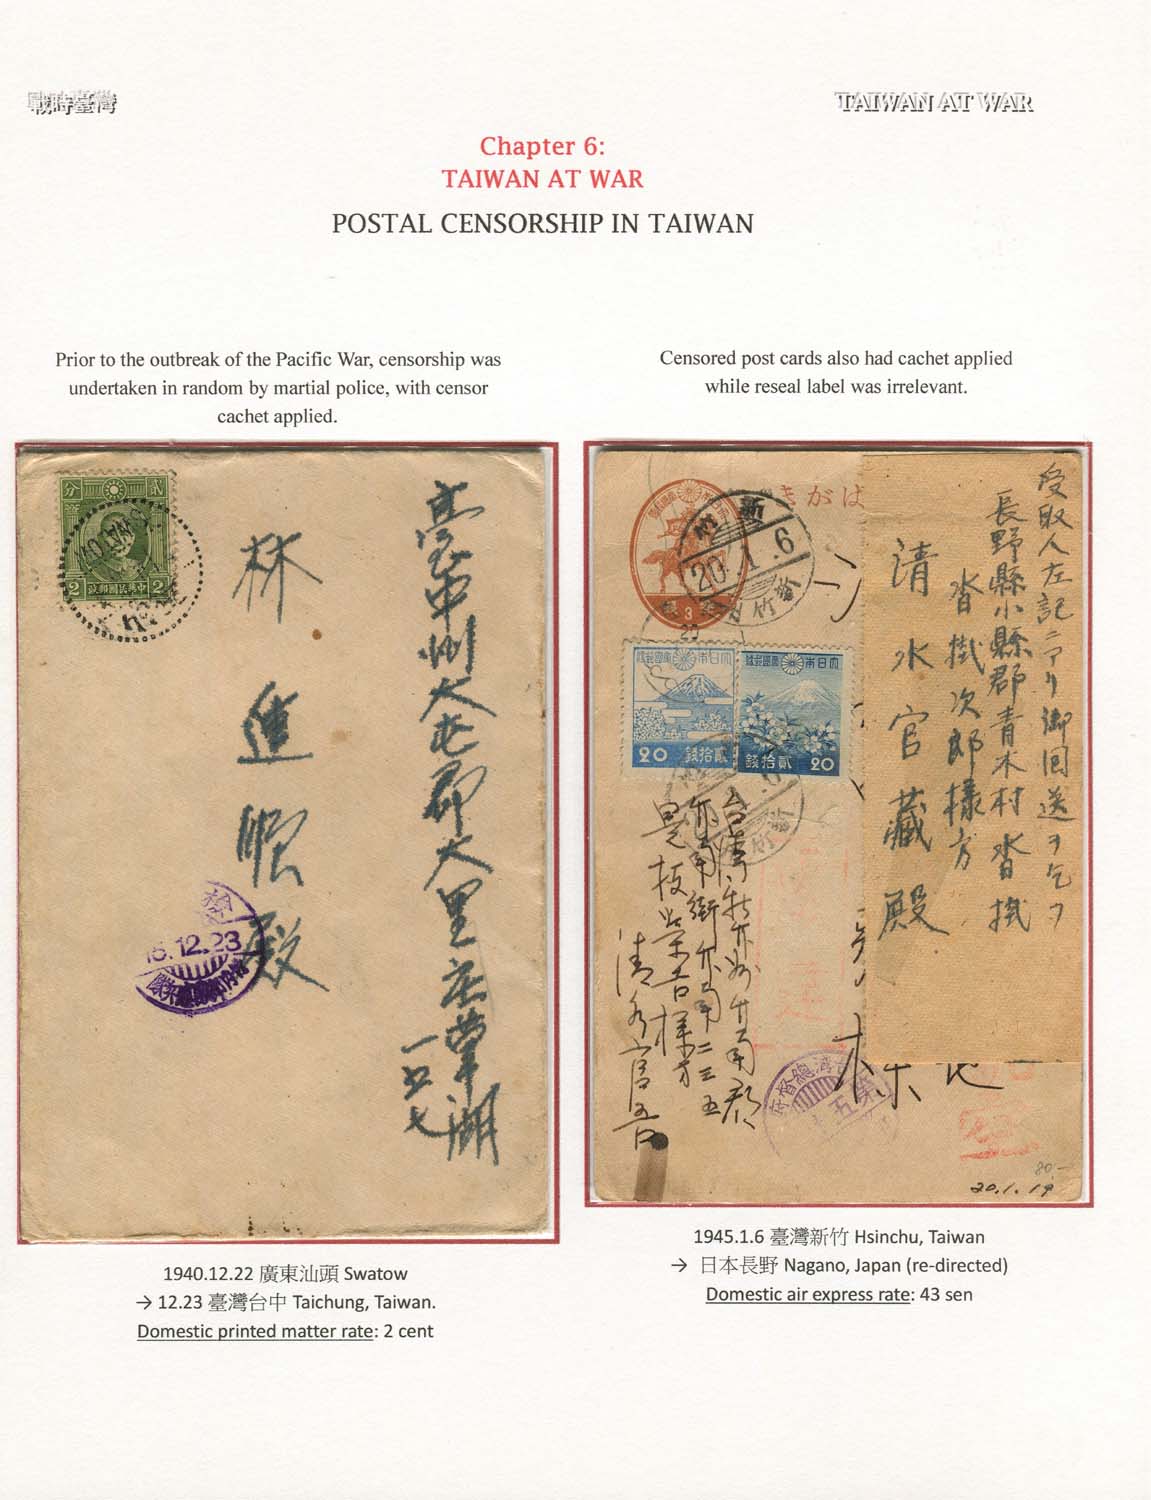 戰時臺灣
TAIWAN AT WAR
Chapter 6:
TAIWAN AT WAR
POSTAL CENSORSHIP IN TAIWAN
Prior to the outbreak of the Pacific War, censorship was
undertaken in random by martial police, with censor
cachet applied.
分 貳
2 政郵國民華中 2
SWATOW
臺中州大屯郡大里庄草湖
一五七
林進順殿
檢
15.12.23
1940.12.22 廣東汕頭 Swatow
→ 12.23 臺灣台中 Taichung, Taiwan.
Domestic printed matter rate: 2 cent
Censored post cards also had cachet applied
while reseal label was irrelevant.
きがは
新竹
20.1.6
新竹
3
大日本帝國郵便
20 錢拾貳
大日本帝國郵便
錢拾貳 20
受取人左記ニアリ御回送ヲ乞フ
長野縣小縣郡青木村沓掛
沓掛次郎樣方
清水官藏殿
府督總灣
第五
80.—
20.1.19
1945.1.6 臺灣新竹 Hsinchu, Taiwan
→ 日本長野 Nagano, Japan (re-directed)
Domestic air express rate: 43 sen